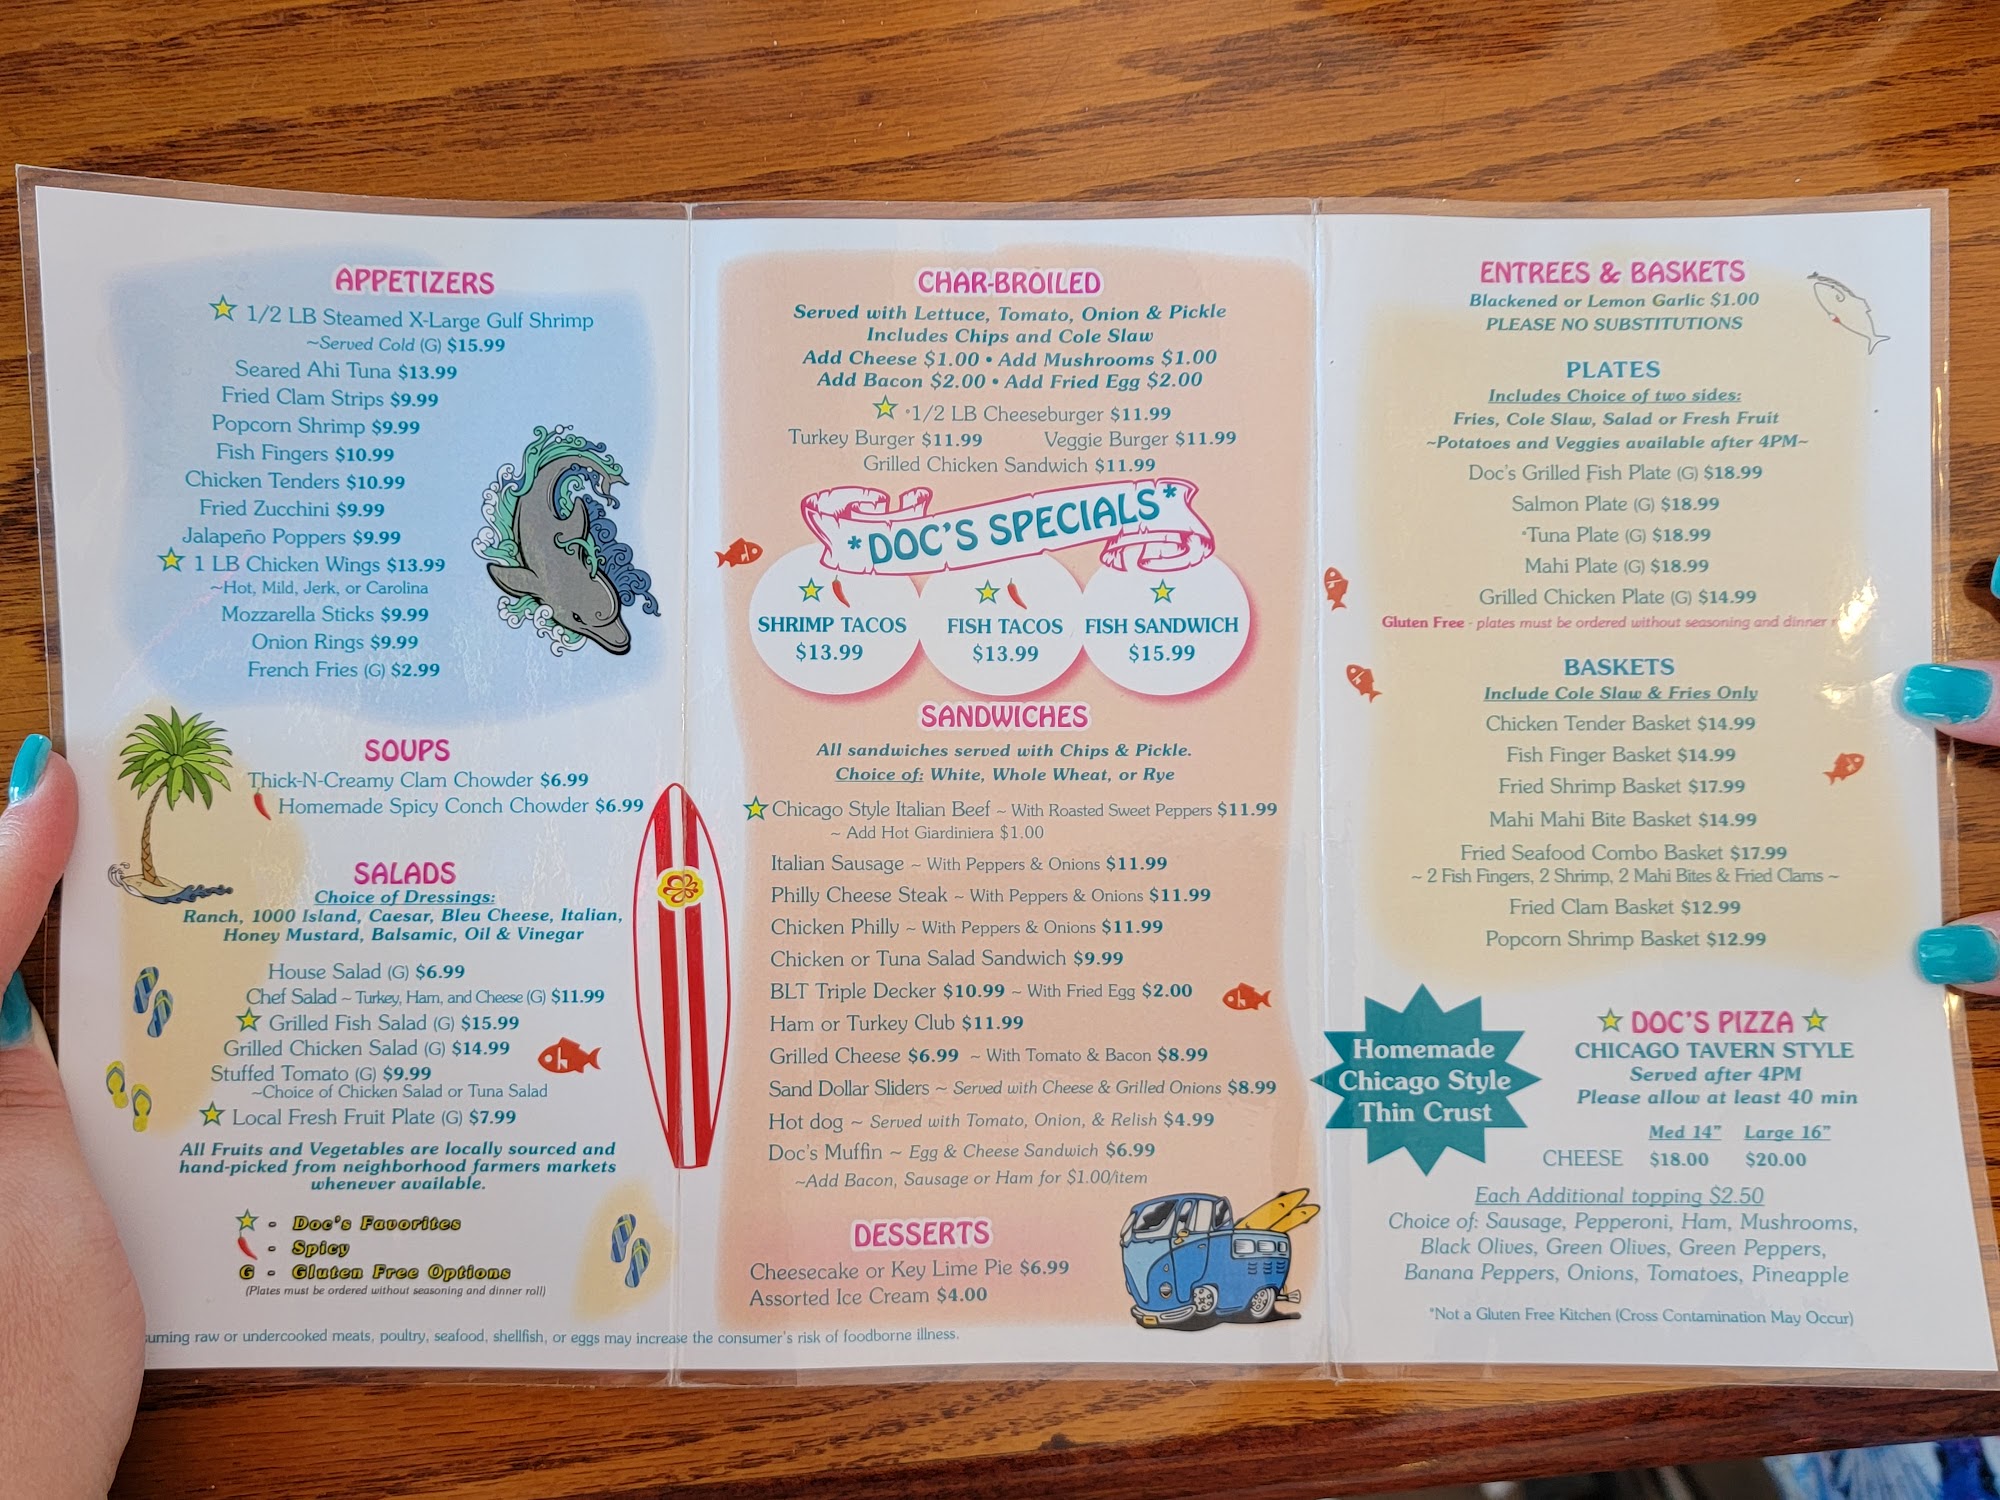 APPETIZERS
1/2 LB Steamed X-Large Gulf Shrimp
~Served Cold (G) $15.99
Seared Ahi Tuna $13.99
Fried Clam Strips $9.99
Popcorn Shrimp $9.99
Fish Fingers $10.99
Chicken Tenders $10.99
Fried Zucchini $9.99
Jalapeño Poppers $9.99
1 LB Chicken Wings $13.99
~Hot, Mild, Jerk, or Carolina
Mozzarella Sticks $9.99
Onion Rings $9.99
French Fries (G) $2.99
SOUPS
Thick-N-Creamy Clam Chowder $6.99
Homemade Spicy Conch Chowder $6.99
SALADS
Choice of Dressings:
Ranch, 1000 Island, Caesar, Bleu Cheese, Italian,
Honey Mustard, Balsamic, Oil & Vinegar
House Salad (G) $6.99
Chef Salad ~ Turkey, Ham, and Cheese (G) $11.99
Grilled Fish Salad (G) $15.99
Grilled Chicken Salad (G) $14.99
Stuffed Tomato (G) $9.99
~Choice of Chicken Salad or Tuna Salad
Local Fresh Fruit Plate (G) $7.99
All Fruits and Vegetables are locally sourced and
hand-picked from neighborhood farmers markets
whenever available.
- Doc's Favorites
- Spicy
G - Gluten Free Options
(Plates must be ordered without seasoning and dinner roll)
raw or undercooked meats, poultry, seafood, shellfish, or eggs may increase the consumer's risk of foodborne illness.
CHAR-BROILED
Served with Lettuce, Tomato, Onion & Pickle
Includes Chips and Cole Slaw
Add Cheese $1.00 • Add Mushrooms $1.00
Add Bacon $2.00 • Add Fried Egg $2.00
*1/2 LB Cheeseburger $11.99
Turkey Burger $11.99 Veggie Burger $11.99
Grilled Chicken Sandwich $11.99
*DOC'S SPECIALS*
SHRIMP TACOS
$13.99
FISH TACOS
$13.99
FISH SANDWICH
$15.99
SANDWICHES
All sandwiches served with Chips & Pickle.
Choice of: White, Whole Wheat, or Rye
Chicago Style Italian Beef ~ With Roasted Sweet Peppers $11.99
~ Add Hot Giardiniera $1.00
Italian Sausage ~ With Peppers & Onions $11.99
Philly Cheese Steak ~ With Peppers & Onions $11.99
Chicken Philly ~ With Peppers & Onions $11.99
Chicken or Tuna Salad Sandwich $9.99
BLT Triple Decker $10.99 ~ With Fried Egg $2.00
Ham or Turkey Club $11.99
Grilled Cheese $6.99 ~ With Tomato & Bacon $8.99
Sand Dollar Sliders ~ Served with Cheese & Grilled Onions $8.99
Hot dog ~ Served with Tomato, Onion, & Relish $4.99
Doc's Muffin ~ Egg & Cheese Sandwich $6.99
~Add Bacon, Sausage or Ham for $1.00/item
DESSERTS
Cheesecake or Key Lime Pie $6.99
Assorted Ice Cream $4.00
ENTREES & BASKETS
Blackened or Lemon Garlic $1.00
PLEASE NO SUBSTITUTIONS
PLATES
Includes Choice of two sides:
Fries, Cole Slaw, Salad or Fresh Fruit
~Potatoes and Veggies available after 4PM~
Doc's Grilled Fish Plate (G) $18.99
Salmon Plate (G) $18.99
*Tuna Plate (G) $18.99
Mahi Plate (G) $18.99
Grilled Chicken Plate (G) $14.99
Gluten Free - plates must be ordered without seasoning and dinner
BASKETS
Include Cole Slaw & Fries Only
Chicken Tender Basket $14.99
Fish Finger Basket $14.99
Fried Shrimp Basket $17.99
Mahi Mahi Bite Basket $14.99
Fried Seafood Combo Basket $17.99
~ 2 Fish Fingers, 2 Shrimp, 2 Mahi Bites & Fried Clams ~
Fried Clam Basket $12.99
Popcorn Shrimp Basket $12.99
Homemade
Chicago Style
Thin Crust
DOC'S PIZZA
CHICAGO TAVERN STYLE
Served after 4PM
Please allow at least 40 min
Med 14" Large 16"
CHEESE $18.00 $20.00
Each Additional topping $2.50
Choice of: Sausage, Pepperoni, Ham, Mushrooms,
Black Olives, Green Olives, Green Peppers,
Banana Peppers, Onions, Tomatoes, Pineapple
*Not a Gluten Free Kitchen (Cross Contamination May Occur)